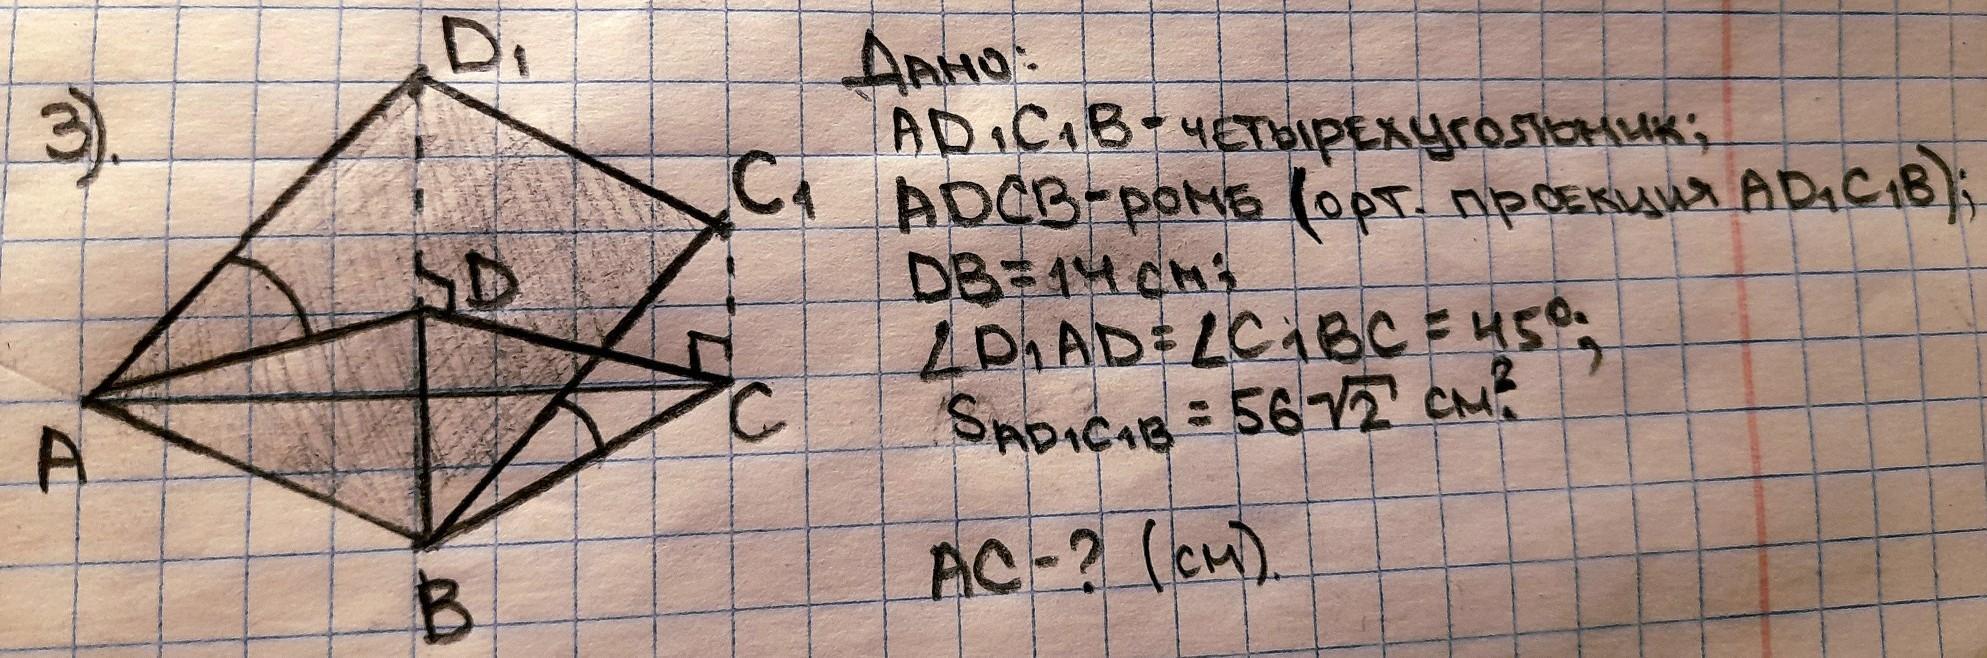 3).
D1
C1
D
C
A
B
Дано:
AD1C1B-четырехугольник;
ADCB-ромб (орт. проекция AD1C1B);
DB=14 см;
∠D1AD=∠C1BC=45°;
SAD1C1B=56√2 см².
AC-? (см).